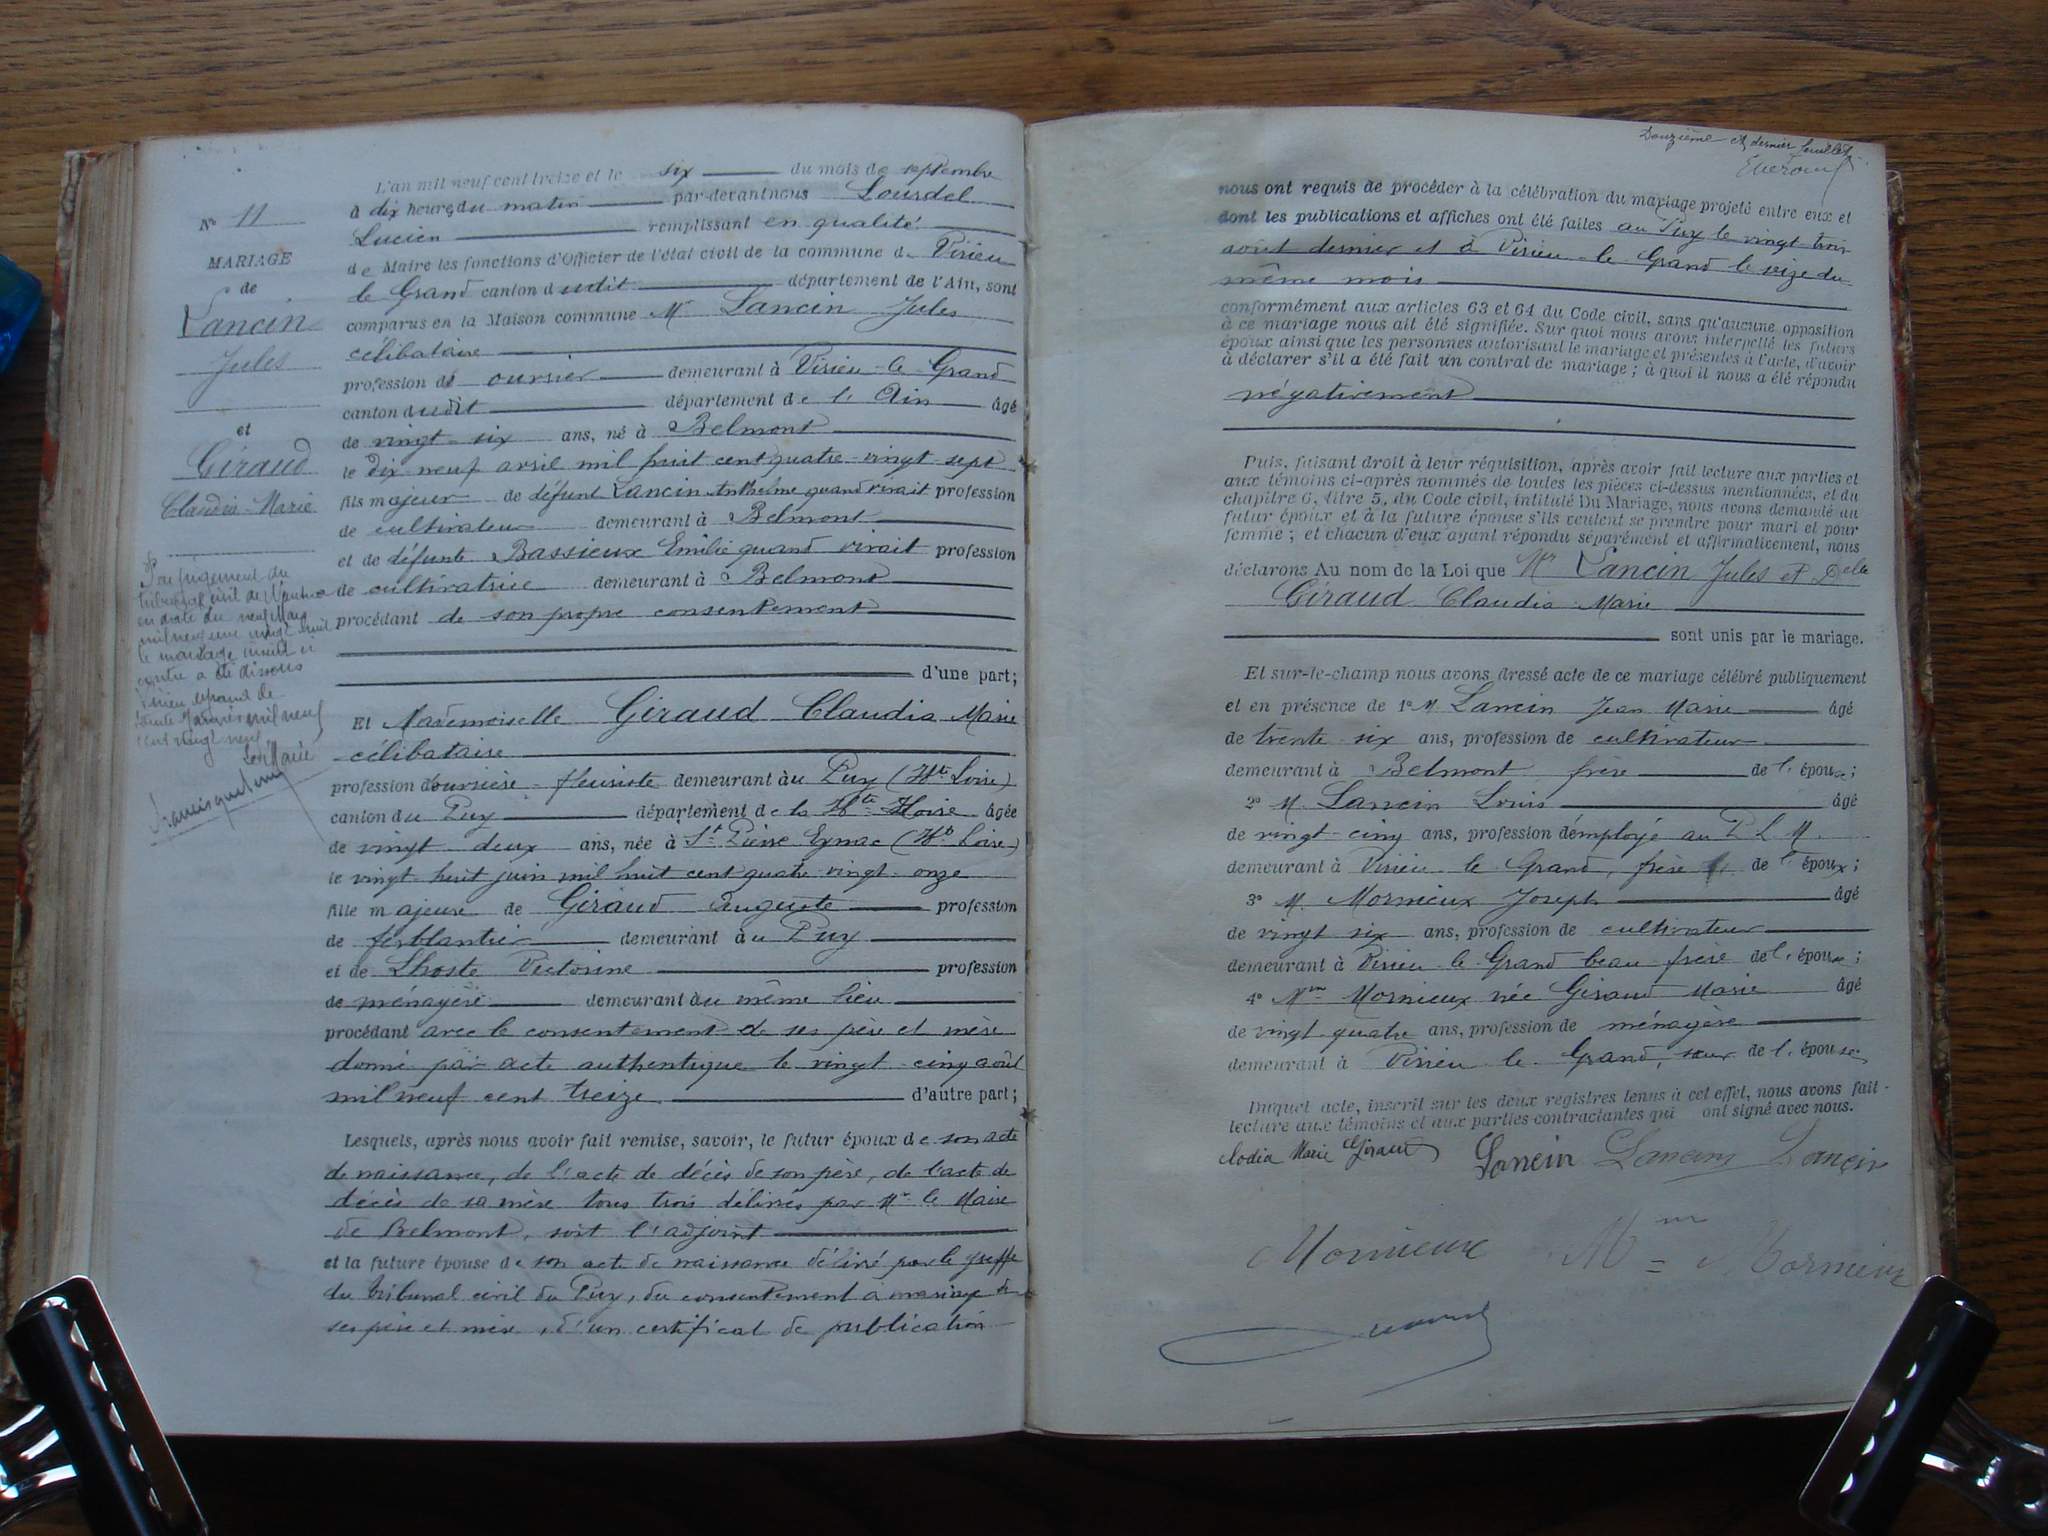 Nº 11
MARIAGE
de
Lancin
Jules
et
Giraud
Claudia Marie
Par jugement du
tribunal civil de Nantua
en date du neuf Mars
mil neuf cent vingt huit
le mariage inscrit ci
contre a été dissous
Virieu le grand le
trente Janvier mil neuf
cent vingt neuf
Le Maire
L'an mil neuf cent treize et le six du mois de septembre
à dix heures du matin par-devant nous Lourdel
Lucien remplissant en qualité
de Maire les fonctions d'Officier de l'état civil de la commune de Virieu
le Grand canton dudit département de l'Ain, sont
comparus en la Maison commune Mr Lancin Jules
célibataire
profession de ouvrier demeurant à Virieu-le-Grand
canton dudit département de l'Ain âgé
de vingt-six ans, né à Belmont
le dix-neuf avril mil huit cent quatre-vingt-sept
fils majeur de défunt Lancin Anthelme quand vivait profession
de cultivateur demeurant à Belmont
et de défunte Bassieux Emilie quand vivait profession
de cultivatrice demeurant à Belmont
procédant de son propre consentement
d'une part;
Et Mademoiselle Giraud Claudia Marie
célibataire
profession d'ouvrière-fleuriste demeurant au Puy (Hte Loire)
canton du Puy département de la Hte Loire âgée
de vingt-deux ans, née à St Pierre Eynac (Hte Loire)
le vingt-huit juin mil huit cent quatre-vingt-onze
fille majeure de Giraud Auguste profession
de ferblantier demeurant au Puy
et de Lhoste Victorine profession
de ménagère demeurant au même lieu
procédant avec le consentement de ses père et mère
donné par acte authentique le vingt-cinq août
mil neuf cent treize d'autre part;
Lesquels, après nous avoir fait remise, savoir, le futur époux de son acte
de naissance, de l'acte de décès de son père, de l'acte de
décès de sa mère tous trois délivrés par Mr le Maire
de Belmont, soit l'adjoint
et la future épouse de son acte de naissance délivré par le greffe
du tribunal civil du Puy, du consentement à mariage de
ses père et mère, d'un certificat de publication
Douzième et dernier feuillet
nous ont requis de procéder à la célébration du mariage projeté entre eux et
dont les publications et affiches ont été faites au Puy le vingt-trois
août dernier et à Virieu-le-Grand le seize du
même mois
conformément aux articles 63 et 64 du Code civil, sans qu'aucune opposition
à ce mariage nous ait été signifiée. Sur quoi nous avons interpellé les futurs
époux ainsi que les personnes autorisant le mariage et présentes à l'acte, d'avoir
à déclarer s'il a été fait un contrat de mariage; à quoi il nous a été répondu
négativement
Puis, faisant droit à leur réquisition, après avoir fait lecture aux parties et
aux témoins ci-après nommés de toutes les pièces ci-dessus mentionnées, et du
chapitre 6, titre 5, du Code civil, intitulé Du Mariage, nous avons demandé au
futur époux et à la future épouse s'ils veulent se prendre pour mari et pour
femme; et chacun d'eux ayant répondu séparément et affirmativement, nous
déclarons Au nom de la Loi que Mr Lancin Jules et Delle
Giraud Claudia Marie
sont unis par le mariage.
Et sur-le-champ nous avons dressé acte de ce mariage célébré publiquement
et en présence de 1º M Lancin Jean Marie âgé
de trente-six ans, profession de cultivateur
demeurant à Belmont frère de l'époux;
2º M. Lancin Louis âgé
de vingt-cinq ans, profession d'employé au P L M.
demeurant à Virieu-le-Grand, frère de l'époux;
3º M. Mornieux Joseph âgé
de vingt six ans, profession de cultivateur
demeurant à Virieu-le-Grand beau-frère de l'épouse;
4º Mme Mornieux née Giraud Marie âgé
de vingt quatre ans, profession de ménagère
demeurant à Virieu-le-Grand, sœur de l'épouse
Duquel acte, inscrit sur les deux registres tenus à cet effet, nous avons fait
lecture aux témoins et aux parties contractantes qui ont signé avec nous.
Clodia Marie Giraud Lancin Lancin Lancin
Mornieux Mme Mornieux